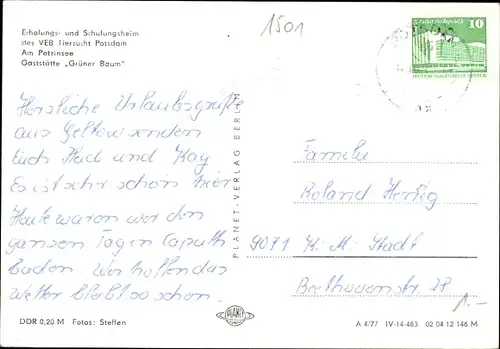 1501
Erholungs- und Schulungsheim
des VEB Tierzucht Potsdam
Am Petzinsee
Gaststätte „Grüner Baum"
10
Herzliche Urlaubsgrüße
aus Geltow senden
Euch Heid und Kay
Es ist sehr schön hier
Heute waren wir den
ganzen Tag in Caputh
baden. Wir hoffen das
Wetter bleibt so schön.
PLANET-VERLAG BERLIN
Familie
Roland Hertig
9071 K.M. Stadt
Beethovenstr. 28
1.-
DDR 0,20 M Fotos: Steffen
PLANET
A 4/77 IV-14-483 02 04 12 146 M